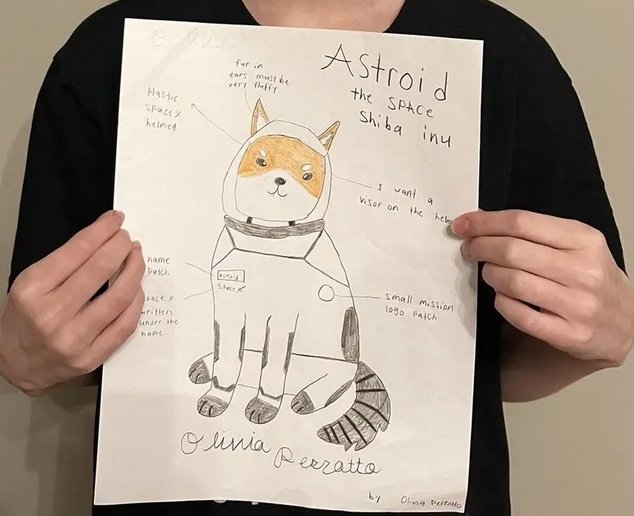 Astroid
the space
Shiba inu
fur in
ears must be
very fluffy
plastic
space x
helmet
I want a
visor on the
name
patch
Astroid
Space X
space x
written
under the
name
small mission
logo patch
Olivia Perrotto
by Olivia Perrotto